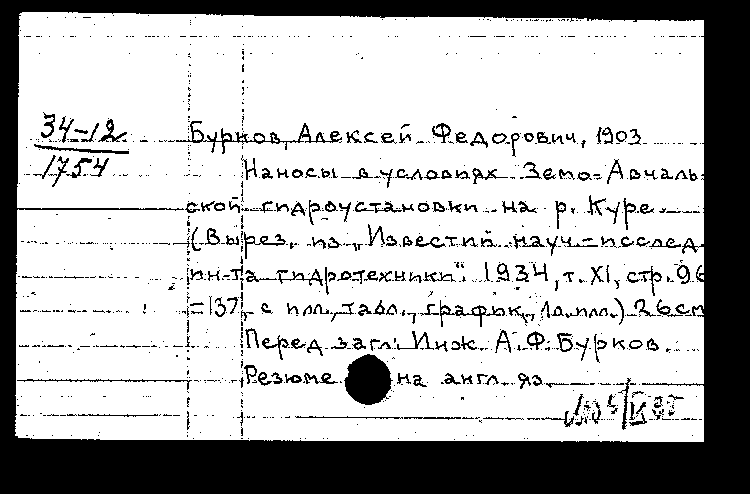 34-12
1754
Бурков, Алексей Федорович, 1903
Наносы в условиях Земо-Авчаль-
ской гидроустановки на р. Куре.
(Вырез. из „Известий науч.-исслед.
ин-та гидротехники". 1934, т. XI, стр. 96
-137, с илл., табл., график., 1 л. илл.) 26 см
Перед загл: Инж. А.Ф. Бурков.
Резюме на англ. яз.